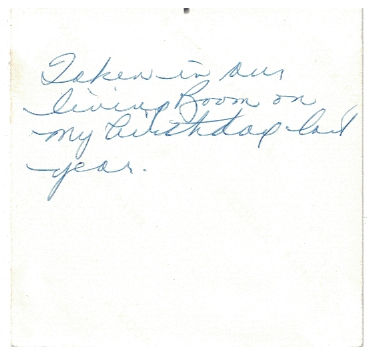 Taken in our
living Room on
my birthday last
year.